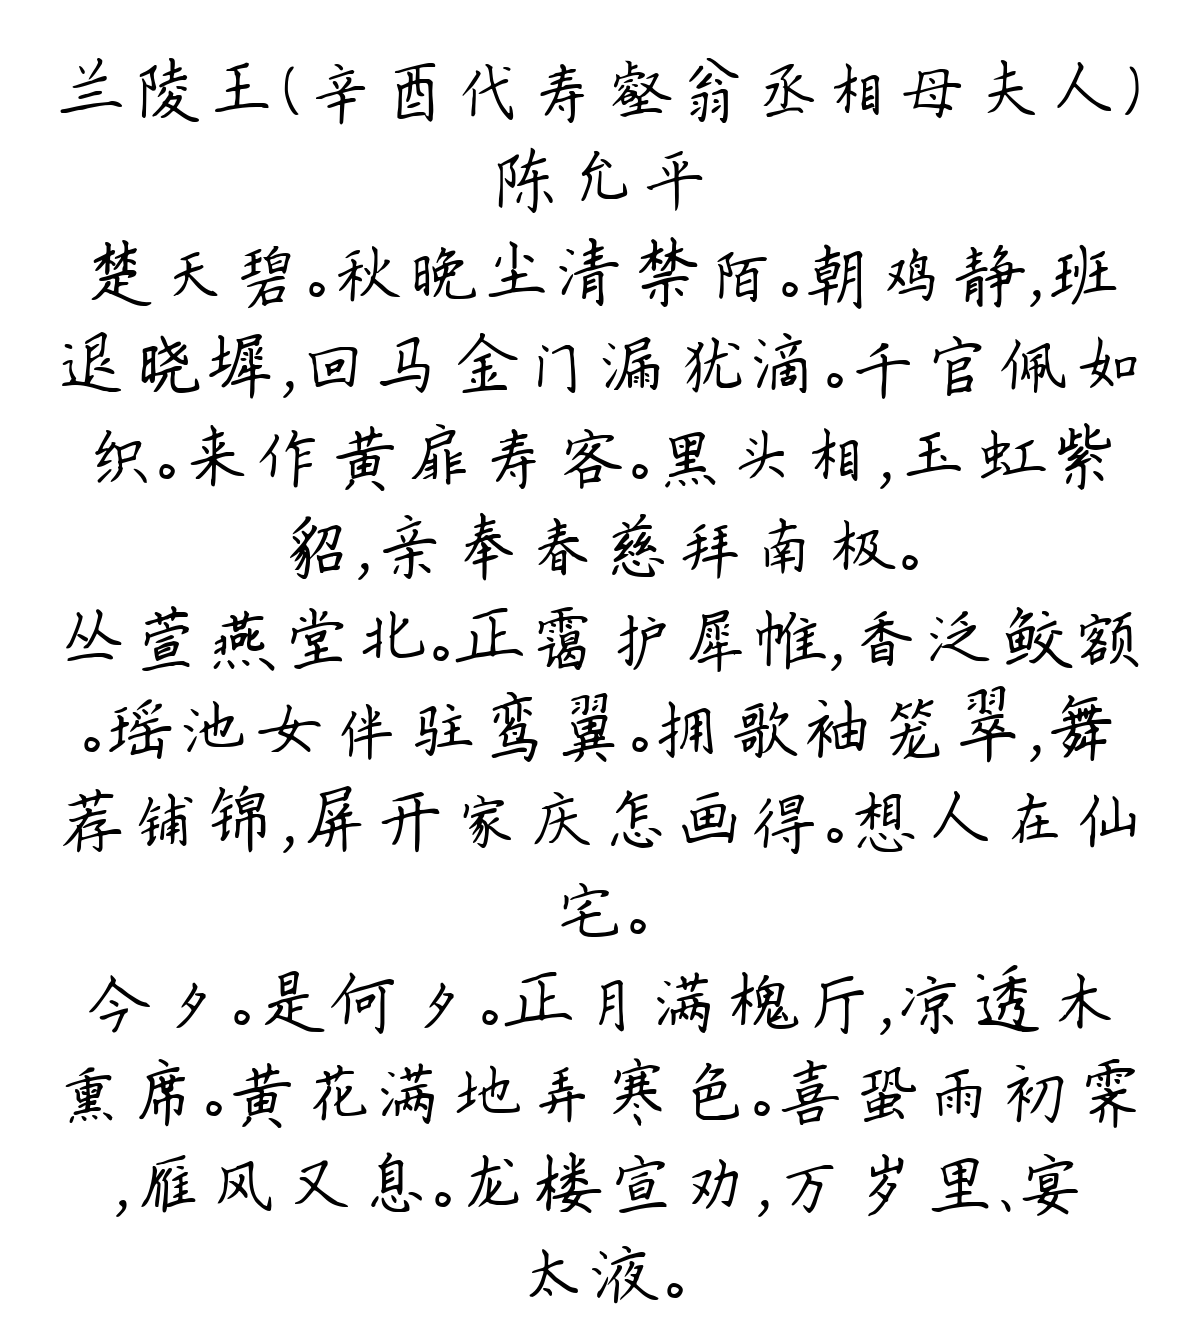 兰陵王(辛酉代寿壑翁丞相母夫人)
陈允平
楚天碧。秋晚尘清禁陌。朝鸡静,班
退晓墀,回马金门漏犹滴。千官佩如
织。来作黄扉寿客。黑头相,玉虹紫
貂,亲奉春慈拜南极。
丛萱燕堂北。正霭护犀帷,香泛鲛额
。瑶池女伴驻鸾翼。拥歌袖笼翠,舞
荐铺锦,屏开家庆怎画得。想人在仙
宅。
今夕。是何夕。正月满槐厅,凉透木
熏席。黄花满地弄寒色。喜蛩雨初霁
,雁风又息。龙楼宣劝,万岁里、宴
太液。